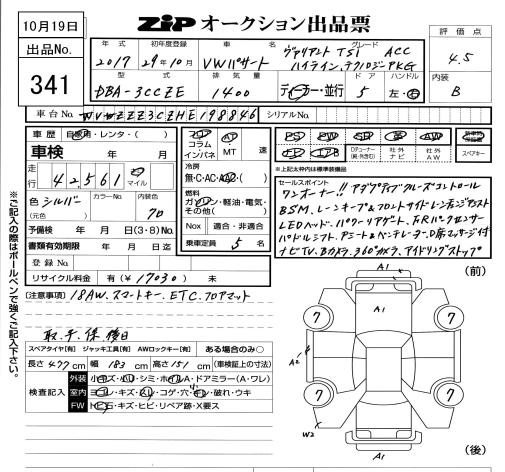 10月19日
ZIP オークション出品票
評価点
4.5
出品No.
341
年式 初年度登録 車名 グレード
2017 29年10月 VWパサート ヴァリアント TSI ACC
ハイライン.テクノロジーPKG
型式 排気量 ドア ハンドル
DBA-3CCZE 1400 ディーラー・並行 5 左・右
内装
B
車台No. WVWZZZ3CZHE198846 シリアルNo.
車歴 自家用・レンタ・( )
車検 年 月
走行 42,561 km マイル
色 シルバー カラーNo. 内装色
(元色) 70
予備検 年 月 日(3・8)No.
書類有効期限 年 月 日迄
登録No.
リサイクル料金 有(¥17030) 未
フロア
コラム
インパネ
AT
・
MT 速
冷房
無・C・AC・AAC・( )
燃料
ガソリン・軽油・電気・
その他( )
Nox 適合・非適合
乗車定員 5 名
PS PW SR AW
TV エアB Dチューナー(純・外含む) 社外ナビ 社外AW スペアキー
※上記太枠内は標準装備
セールスポイント
ワンオーナー!! アダプティブクルーズコントロール
BSM、レーンキープ&フロントサイドレーンキープアシスト
LEDヘッド、パワーリアゲート、FxRパークセンサー
パドルシフト、Aシート&ベンチレーター、D席マッサージ付
ナビTV、Bカメラ、360°カメラ、アイドリングストップ
[注意事項] 18AW.スマートキー.ETC.フロアマット
取.手.保.後日
スペアタイヤ[有] ジャッキ工具[有] AWロックキー[有] ある場合のみ○
長さ 477 cm 幅 183 cm 高さ 151 cm (車検証上の寸法)
検査記入
外装 小キズ・凹・シミ・ホイル・ドアミラー(A・ワレ)
室内 ヨゴレ・キズ・スレ・コゲ・穴・シミ・破れ・ウキ
FW トビ石・キズ・ヒビ・リペア跡・X要ス
※ご記入の際はボールペンで強くご記入下さい。
(前)
A1
A1
7 7
A2
7 7
W2
A1
(後)